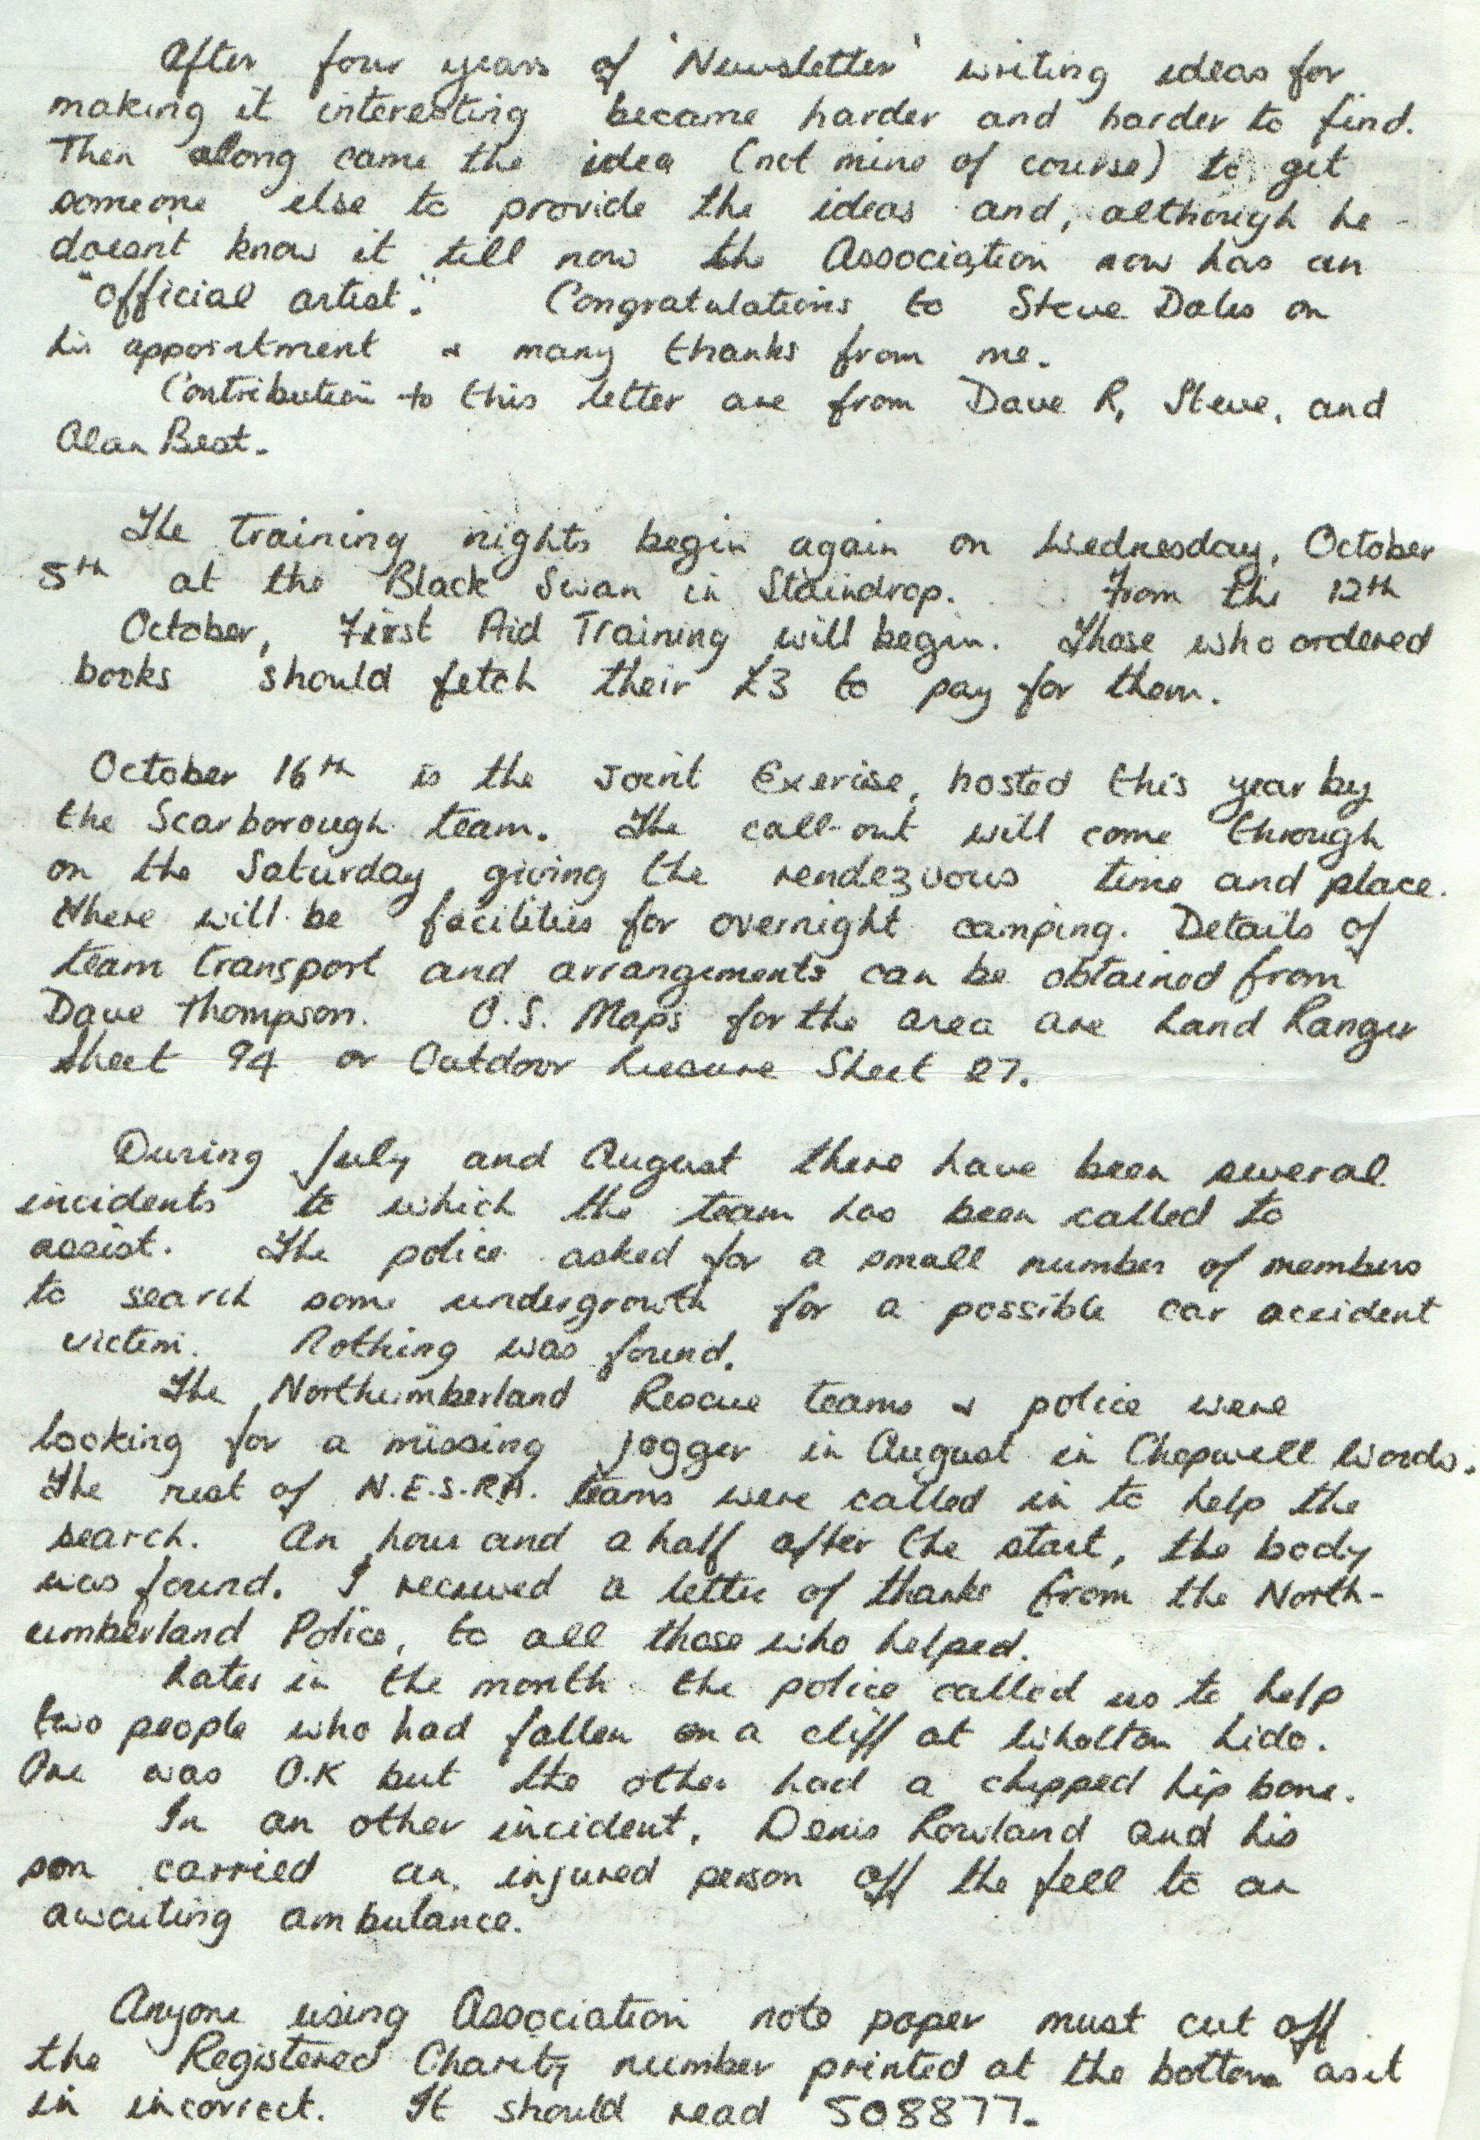 After four years of 'Newsletter' writing ideas for
making it interesting became harder and harder to find.
Then along came the idea (not mine of course) to get
someone else to provide the ideas and, although he
doesn't know it till now the Association now has an
"official artist". Congratulations to Steve Dales on
his appointment & many thanks from me.
Contribution to this letter are from Dave R, Steve, and
Alan Best.
The training nights begin again on Wednesday, October
5th at the Black Swan in Staindrop. From the 12th
October, First Aid Training will begin. Those who ordered
books should fetch their £3 to pay for them.
October 16th is the Joint Exerise, hosted this year by
the Scarborough team. The call-out will come through
on the Saturday, giving the rendezvous time and place.
There will be facilities for overnight camping. Details of
team transport and arrangements can be obtained from
Dave Thompson. O.S. Maps for the area are Land Ranger
Sheet 94 or Outdoor Liesure Sheet 27.
During July and August there have been several
incidents to which the team has been called to
assist. The police asked for a small number of members
to search some undergrowth for a possible car accident
victim. Nothing was found.
The Northumberland Rescue teams & police were
looking for a missing jogger in August in Chopwell Woods.
The rest of N.E.S.R.A. teams were called in to help the
search. An hour and a half after the start, the body
was found. I recieved a letter of thanks from the North-
umberland Police, to all those who helped.
Later in the month the police called us to help
two people who had fallen on a cliff at Wholton Lido.
One was O.K but the other had a chipped hip bone.
In an other incident, Denis Rowland and his
son carried an injured person off the fell to an
awaiting ambulance.
Anyone using Association note paper must cut off
the Registered Charity number printed at the bottom as it
in incorrect. It should read 508877.